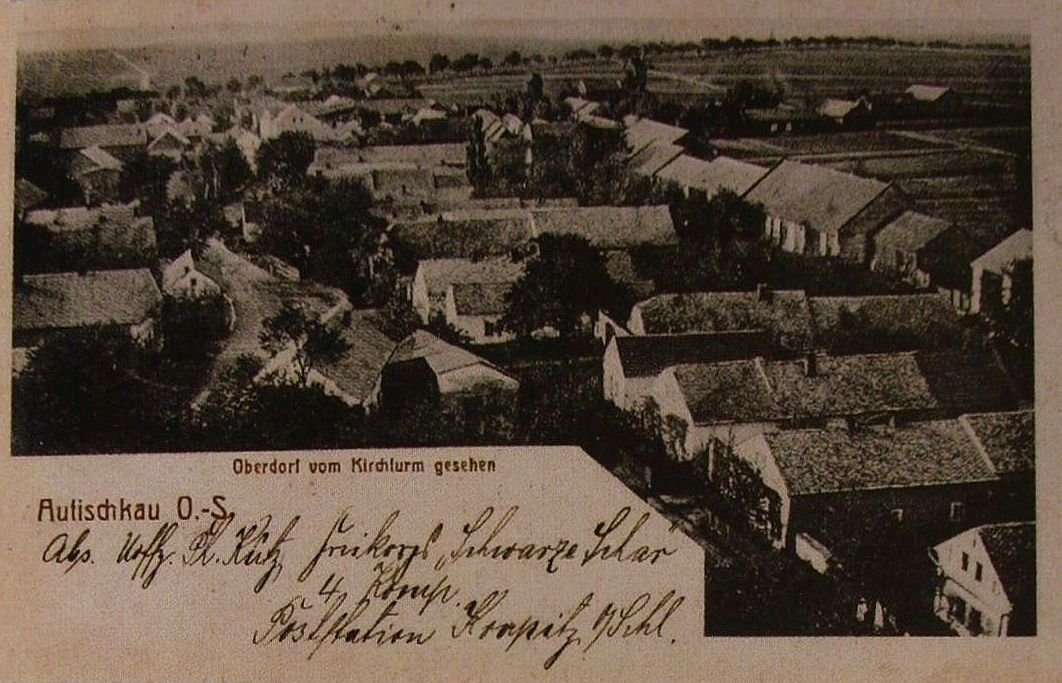 Oberdorf vom Kirchturm gesehen
Autischkau O.-S.
Abs. Uoffz. Kutz Freikorps "Schwarze Schar"
4. Komp.
Poststation Krapitz O/Schl.